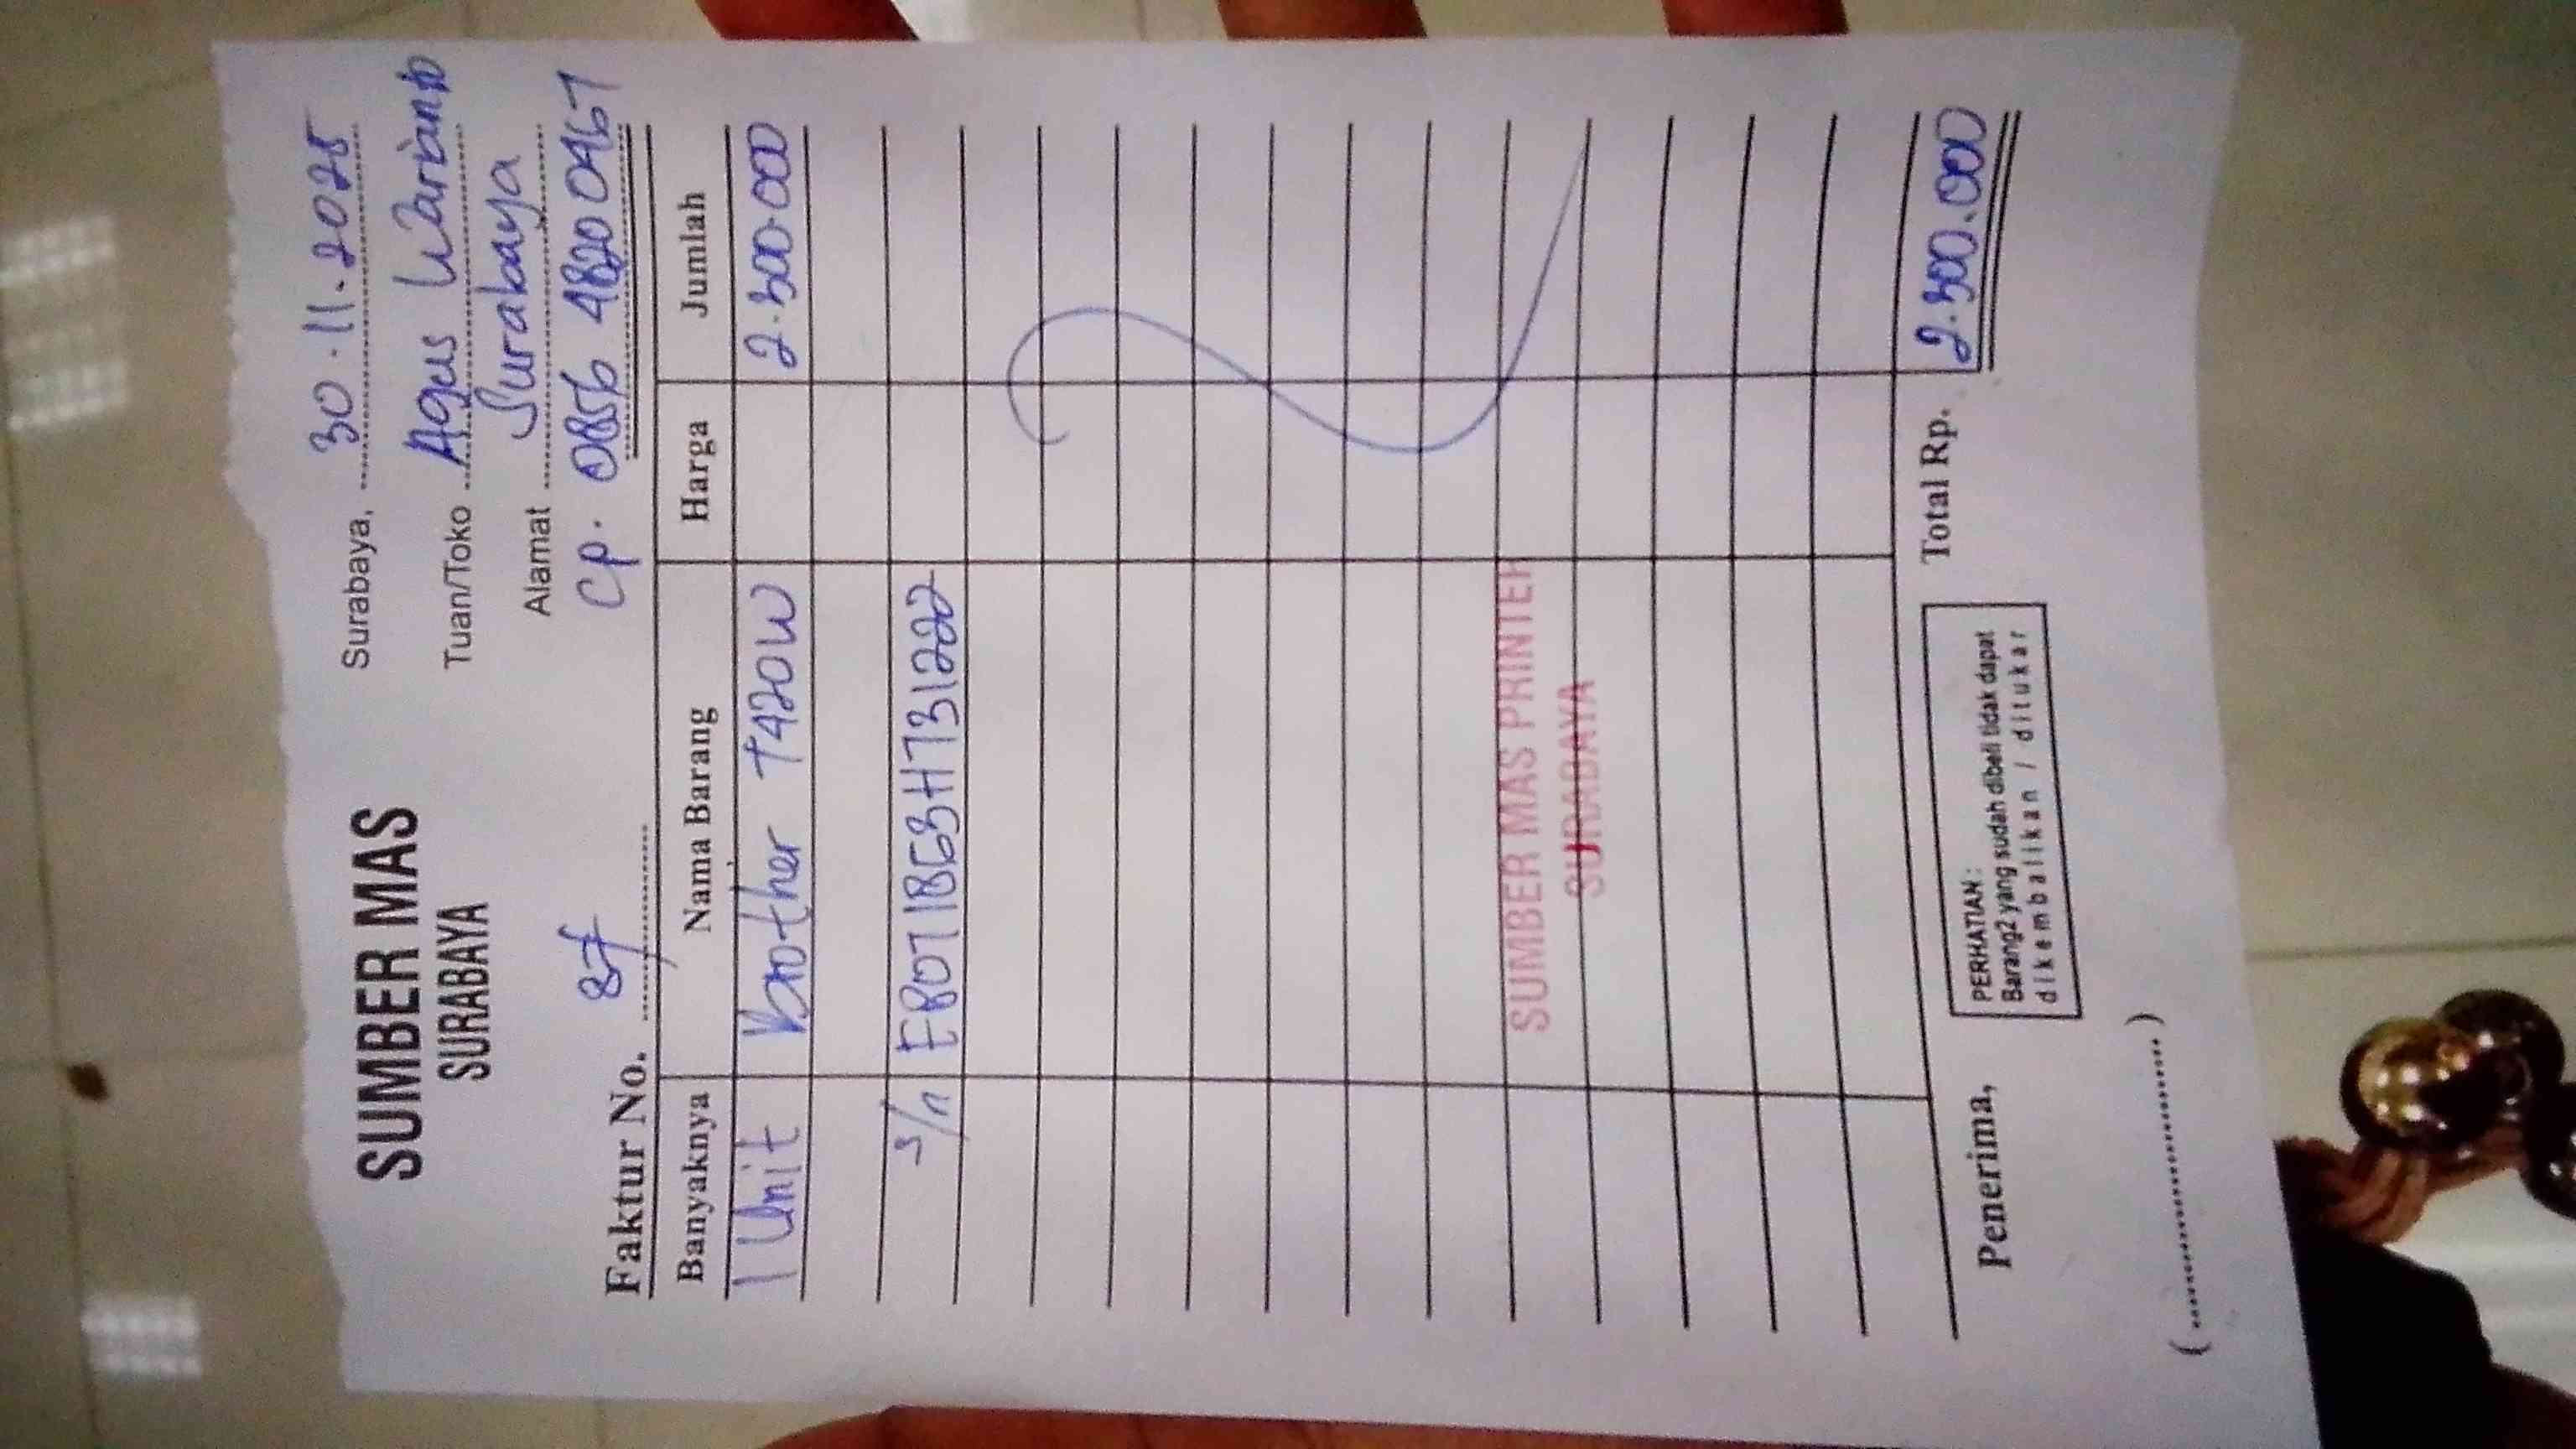 SUMBER MAS
SURABAYA
Surabaya, 30.11.2025
Tuan/Toko Agus Warianto
Alamat Surabaya
Cp. 0856 4820 0467
Faktur No.
Banyaknya Nama Barang Harga Jumlah
1 Unit Brother T420W 2.500.000
S/n E80718G3H731222
SUMBER MAS PRINTER
SURABAYA
Penerima,
PERHATIAN :
Barang2 yang sudah dibeli tidak dapat
dikembalikan / ditukar
Total Rp. 2.500.000
(....................)